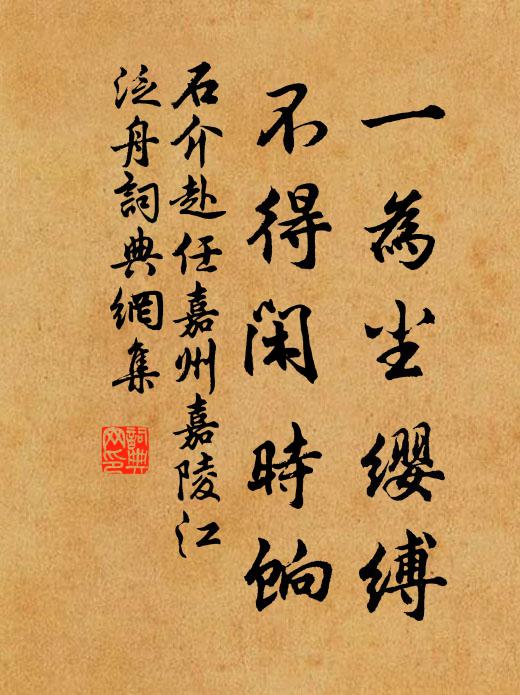 一為尘纓縛
不得閑時餉
石介赴任嘉州嘉陵江
泛舟詞典網集
詞典网印